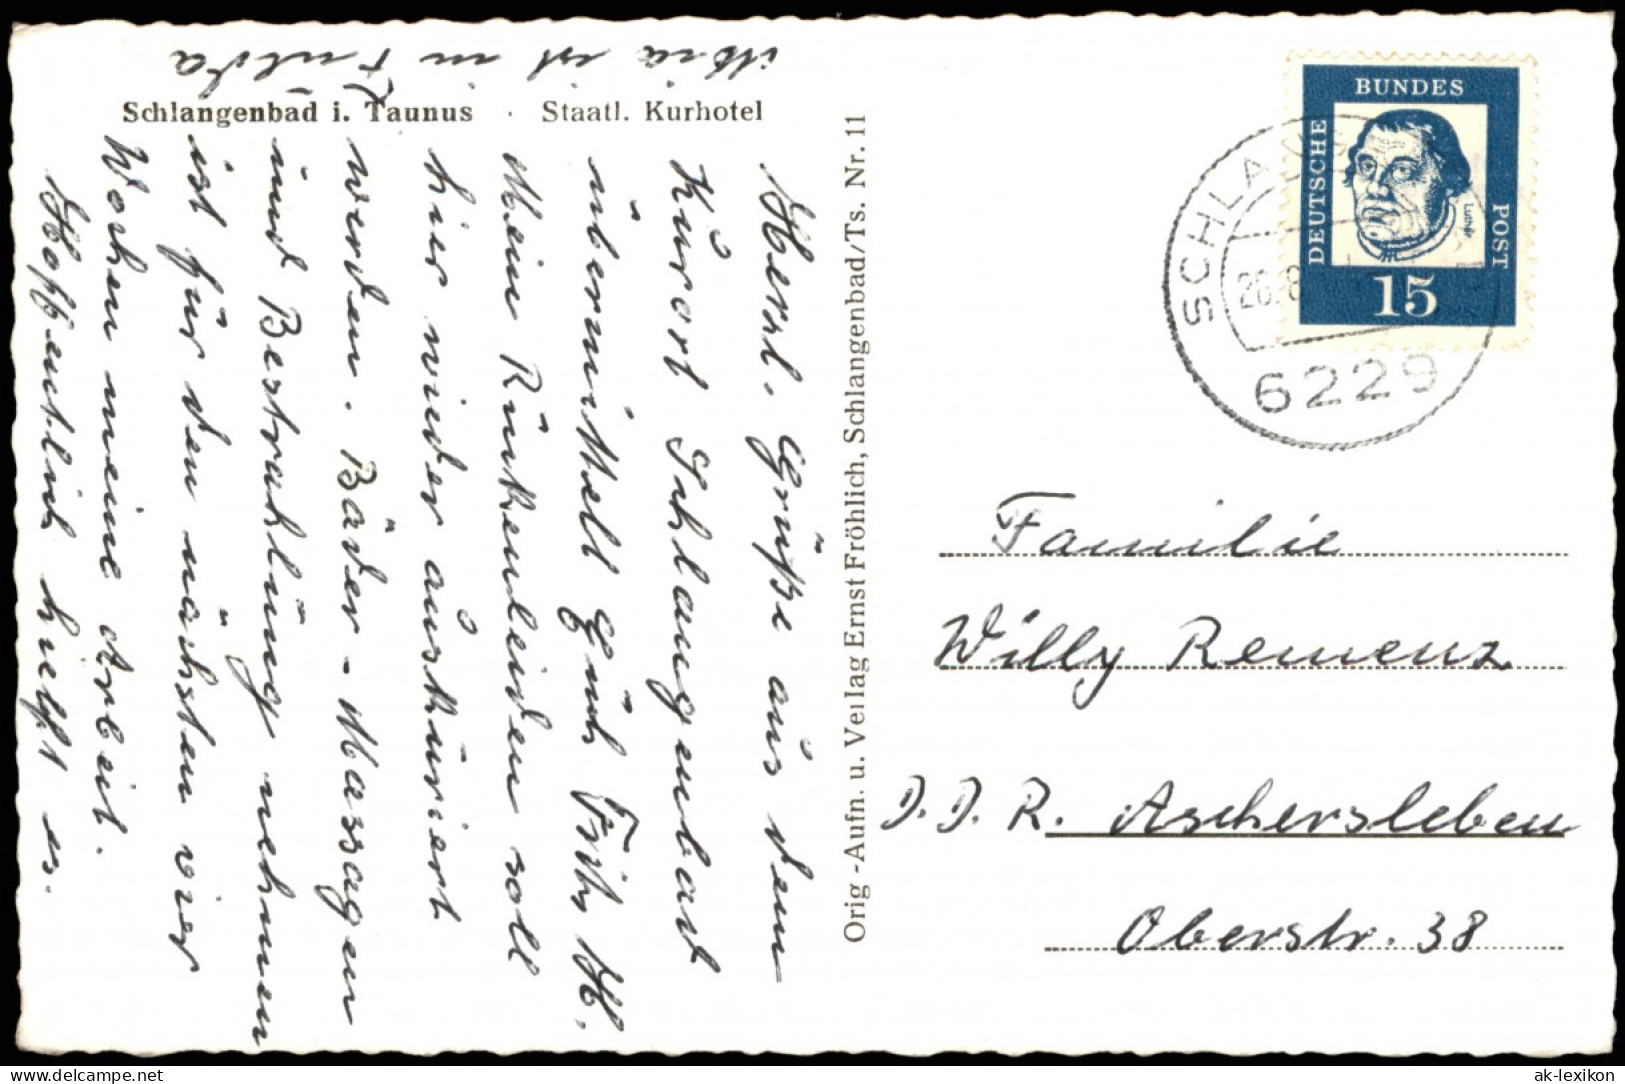 Schlangenbad i. Taunus · Staatl. Kurhotel
Herzl. Grüße aus dem
Kurort Schlangenbad
übermittelt Euch Fritz H.
Mein Rückenleiden soll
hier wieder auskuriert
werden. Bäder-Massagen
und Bestrahlung nehmen
ist für den nächsten vier
Wochen meine Arbeit.
Hoffentlich hilft es.
ist in Fulda
Orig-Aufn. u. Verlag Ernst Fröhlich, Schlangenbad/Ts. Nr. 11
BUNDES
DEUTSCHE
POST
Luther
15
SCHLANG
26.8
6229
Familie
Willy Remenz
D.D.R. Aschersleben
Oberstr. 38
delcampe.net
ak-lexikon